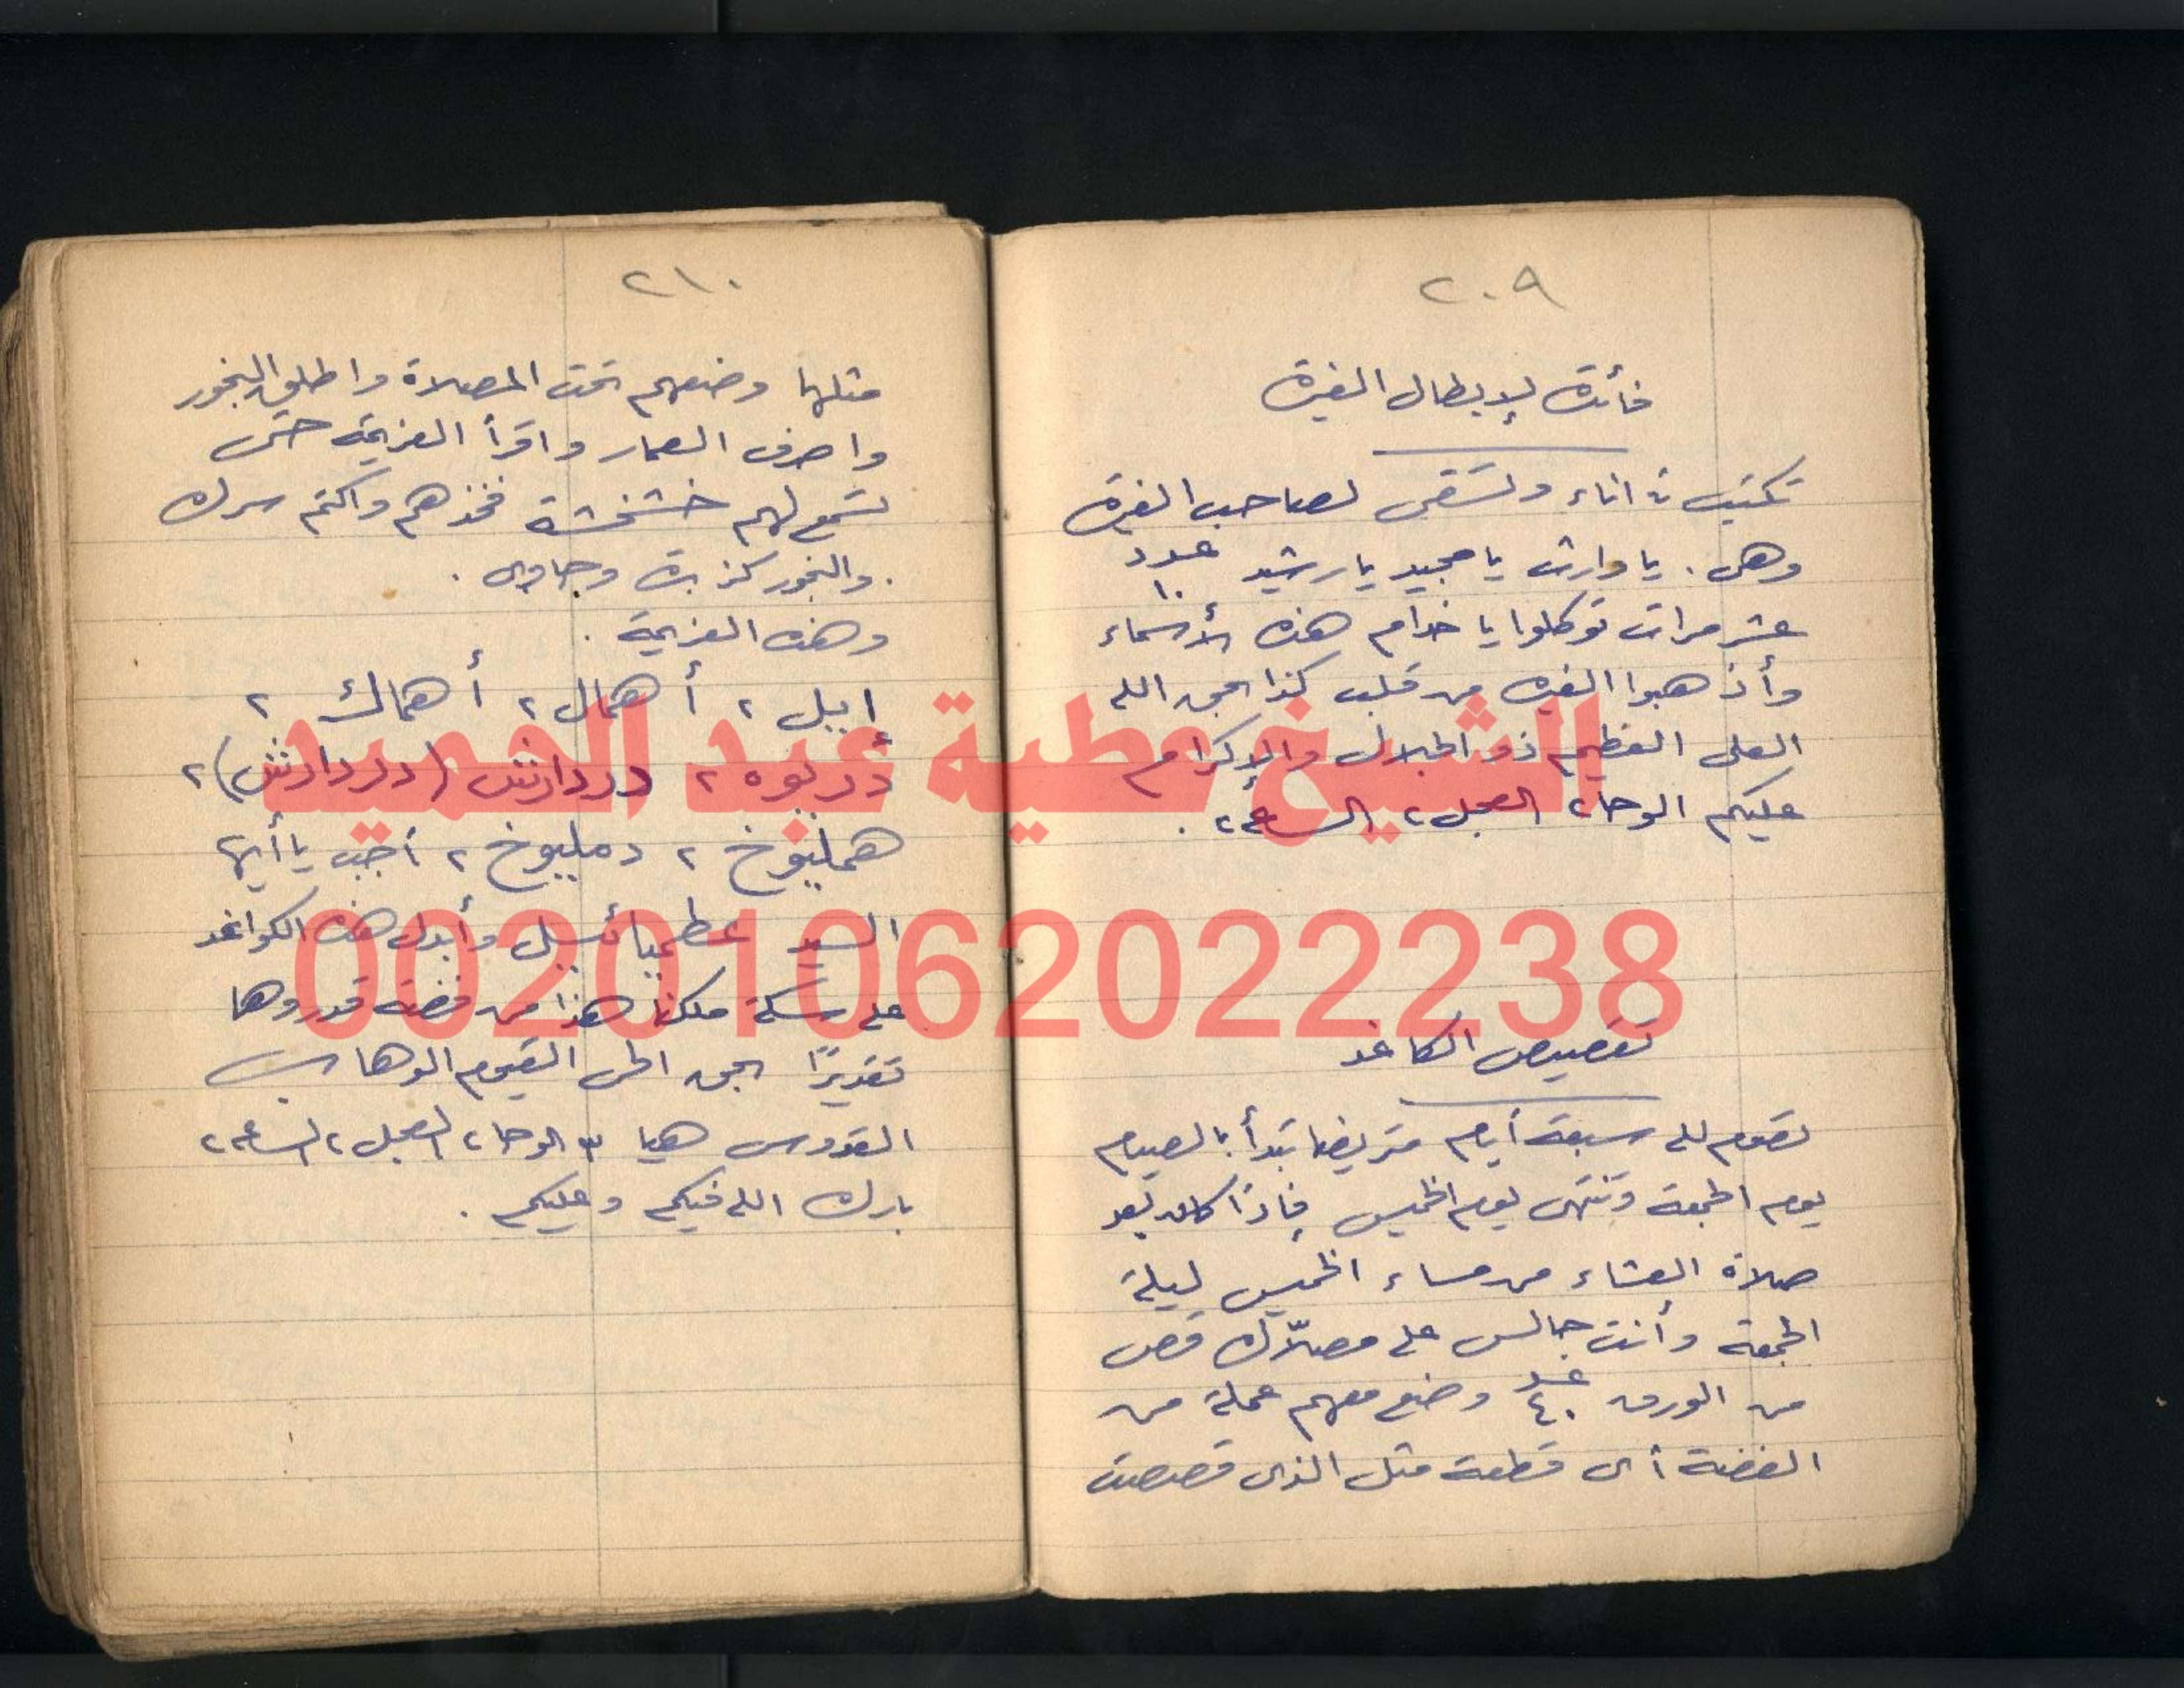 ٢٠٩
فائدة لإبطال الغيرة
تكتب فى اناء وتسقى لصاحب الغيرة
وهى . يا وارث يا مجيد يا رشيد عدد ١٠
عشر مرات توكلوا يا خدام هذه الأسماء
وأذهبوا الغيره من قلب كذا بحق الله
العلى العظيم ذو الجلال والإكرام
عليكم الوحا٢ العجل٢ الساعة٢ .
تقصيص الكاغد
تصوم لله سبعة أيام متريضا تبدأ بالصيام
يوم الجمعة وتنتهى يوم الخميس فإذا كان بعد
صلاة العشاء من مساء الخميس ليلة
الجمعة وأنت جالس على مصلّاك قص
من الورق عدد ٤٠ وضع معهم عملة من
الفضة أى قطعة مثل الذى قصصت
٢١٠
مثلها وضعهم تحت المصلاة واطلق البخور
واصرف العمار واقرأ العزيمة حتى
تسمع لهم خشخشة فخذهم واكتم سرك
. والبخور كزبرة وجاوى .
وهذه العزيمة .
إييل ٢ أهمال ٢ أهماك ٢
دردارش (دردارش) ٢
٢ ٢ أجب يا أيها
السيد وأبدل هذه الكواغد
على سكة ملكنا هذا من فضة قدروها
تقديرًا بحق الحى القيوم الوهاب
القدوس هيا ٣ الوحا٢ العجل٢ الساعة٢
بارك الله فيكم وعليكم .
الشيخ عطية عبد الحميد
00201062022238